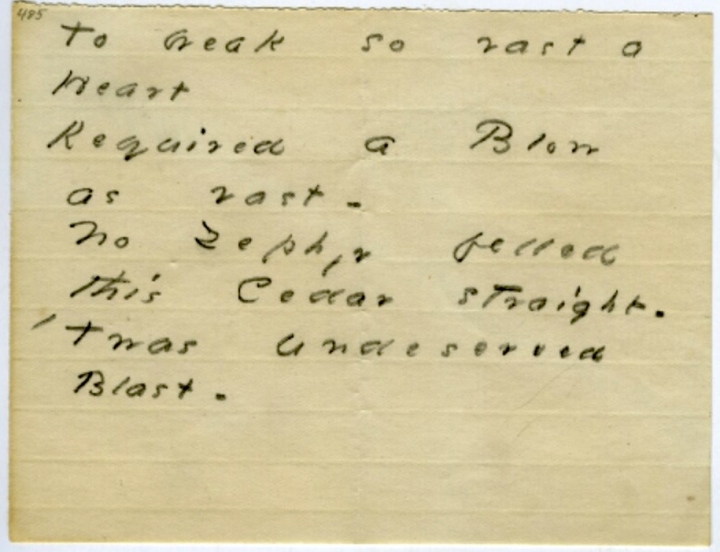 485
To break so vast a
Heart
Required a Blow
as vast -
No Zephyr felled
this Cedar straight -
'Twas undeserved
Blast -